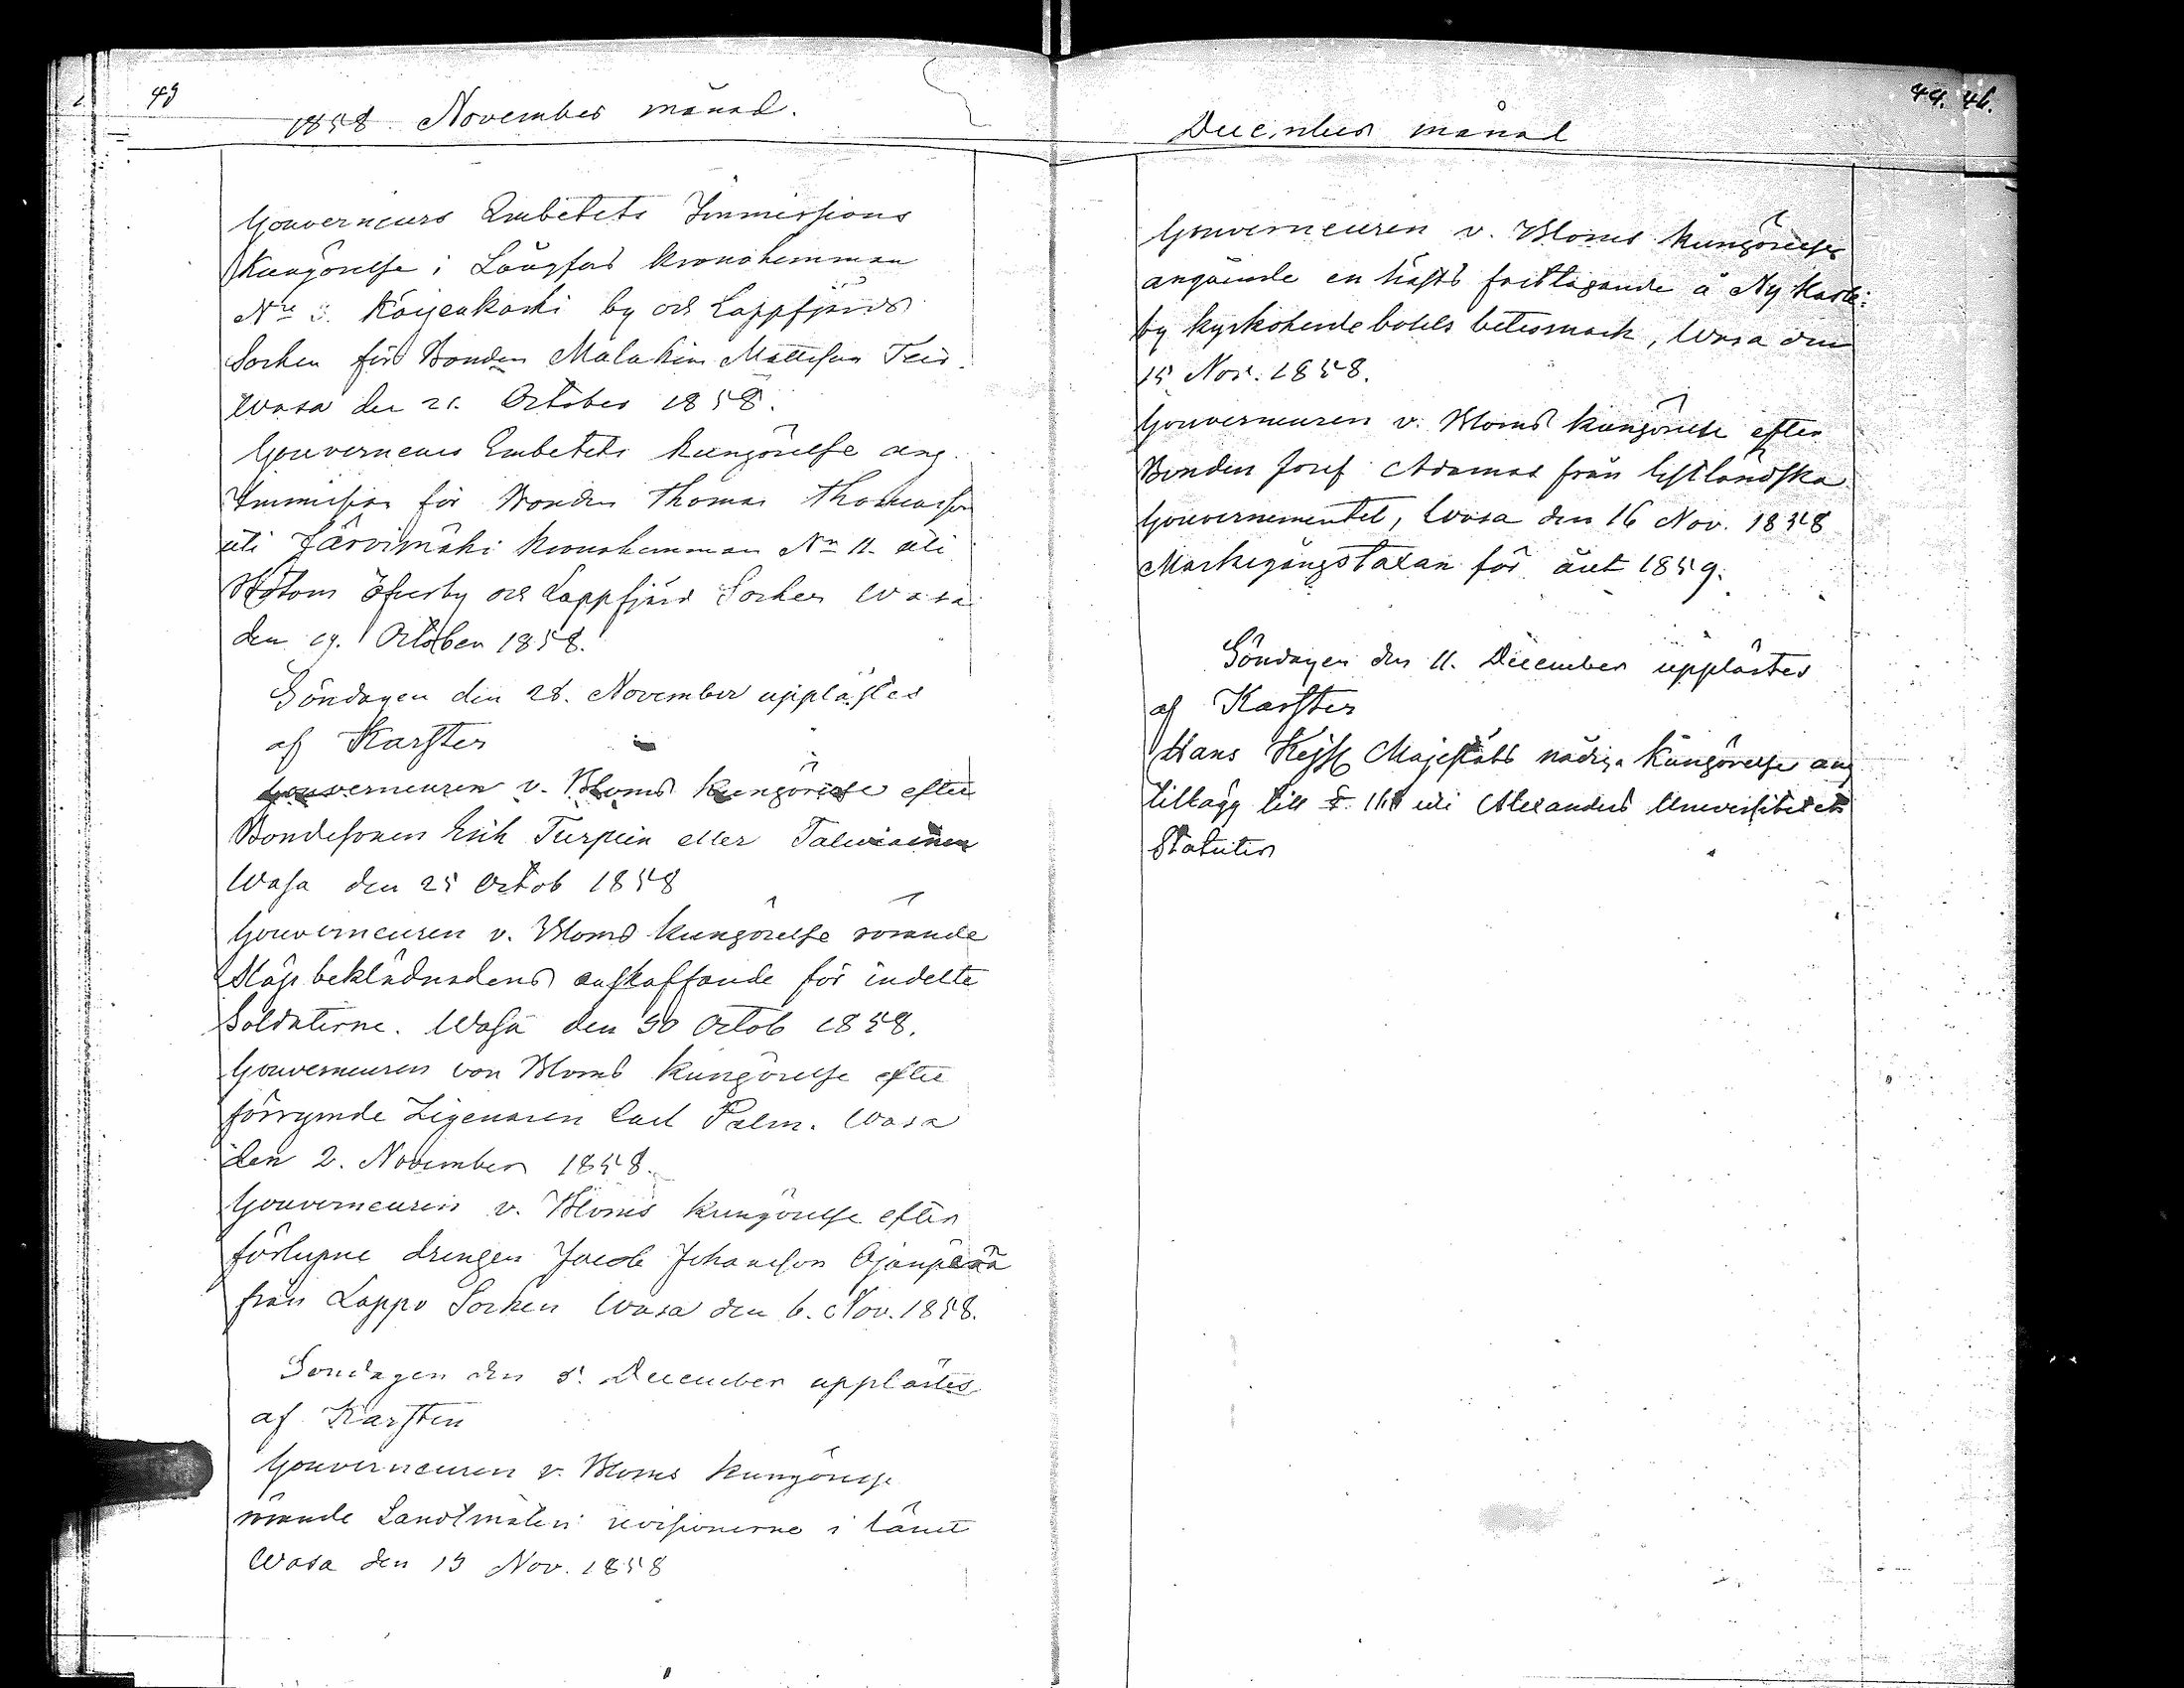 43
1858. November månad.
Gouverneurs Embetets Immissions
Kungörelse i Långfors kronohemman
No 3. Kärjenkoski by och Lappfjärds
Socken för Bonden Malakias Mattsson Teir.
Wasa den 21. October 1858.
Gouverneurs Embetets kungörelse ang.
Immission för Bonden Thomas Thomasson
uti Järvimäki kronohemman No 11. uti
Bötom Öfverby och Lappfjärd Socken Wasa
den 19. October 1858.
Söndagen den 28. November upplästes
af Karsten
Gouverneuren v. Bloms kungörelse efter
Bondesonen Erik Turpein eller Talwiainen
Wasa den 25 Octob 1858
Gouverneuren v. Bloms kungörelse rörande
Släp beklädnadens anskaffande för indelte
Soldaterne. Wasa den 30 Octob 1858.
Gouverneuren von Bloms kungörelse efter
förrymde Zigenaren Carl Palm. Wasa
den 2. November 1858.
Gouverneuren v. Bloms kungörelse efter
förlupne drengen Jacob Johansson Ojanperä
från Lappo Socken Wasa den 6. Nov. 1858.
Söndagen den 5. December upplästes
af Karsten
Gouverneuren v. Bloms kungörelse
rörande Landtmäteri revisionerne i länet
Wasa den 13 Nov. 1858
44. 46.
December månad
Gouverneuren v. Bloms kungörelse
angående en hästs fasttagande å Ny Karle-
by kyrkoherdebohls betesmark, Wasa den
15 Nov. 1858.
Gouverneuren v. Bloms kungörelse efter
Bonden Josef Adamas från Estländska
Gouvernementet, Wasa den 16 Nov. 1858
Markegångstaxan för året 1859.
Söndagen den 11. December upplästes
af Karsten
Hans Kejs. Majestäts nådiga Kungörelse ang
tillägg till §. uti Alexanders Universitetets
Statuter